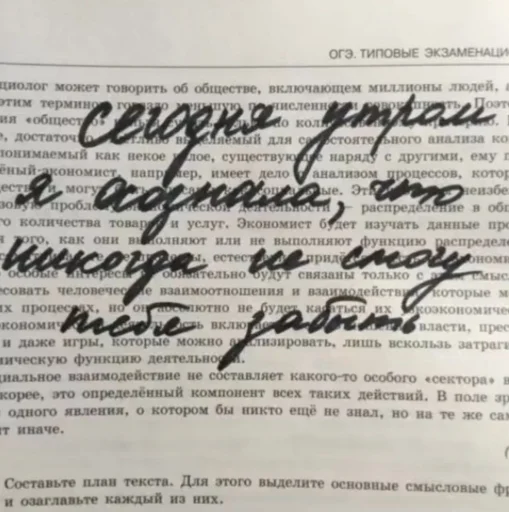 ОГЭ. ТИПОВЫЕ ЭКЗАМЕНАЦИ
циолог может говорить об обществе, включающем миллионы людей, а
этим термином гораздо меньшую по численности
ия «общество»
е, достаточно выделяемый для самостоятельного анализа ко
понимаемый как некое целое, существующее наряду с другими, ему п
ёный-экономист, например, имеет дело с анализом процессов, котор
сегодня утром
я что
никогда не смогу
тебе забыть
распределение в общ
го количества товаров и услуг. Экономист будет изучать данные про
я его, как они выполняют или не выполняют функцию распределе
особые интересы обязательно будут связаны только с
есовать человеческие взаимоотношения и взаимодействия, которые м
их процессах, но абсолютно не будет касаться их
власти, прес
и даже игры, которые можно анализировать, лишь вскользь затраги
мическую функцию деятельности.
циальное взаимодействие не составляет какого-то особого «сектора» в
корее, это определённый компонент всех таких действий. В поле зр
одного явления, о котором бы никто ещё не знал, но на те же сам
ит иначе.
Составьте план текста. Для этого выделите основные смысловые фр
и озаглавьте каждый из них.